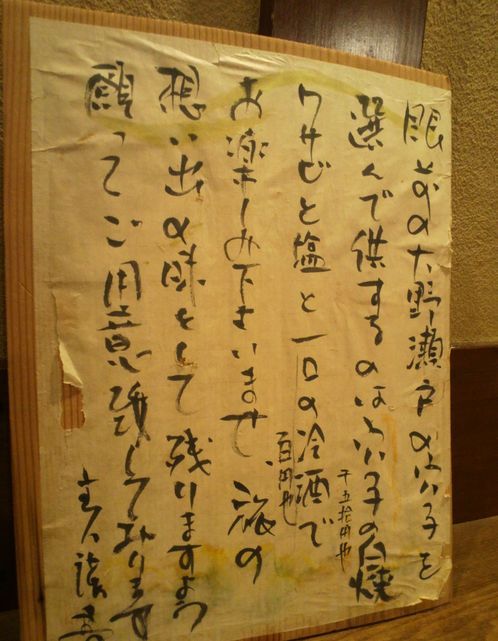 眼前の大野瀬戸の穴子を
選んで供するのは穴子の白焼
千五拾円也
ワサビと塩と一口の冷酒で
百円也
お楽しみ下さいませ 旅の
想い出の味として残りますよう
願ってご用意致しております
主人